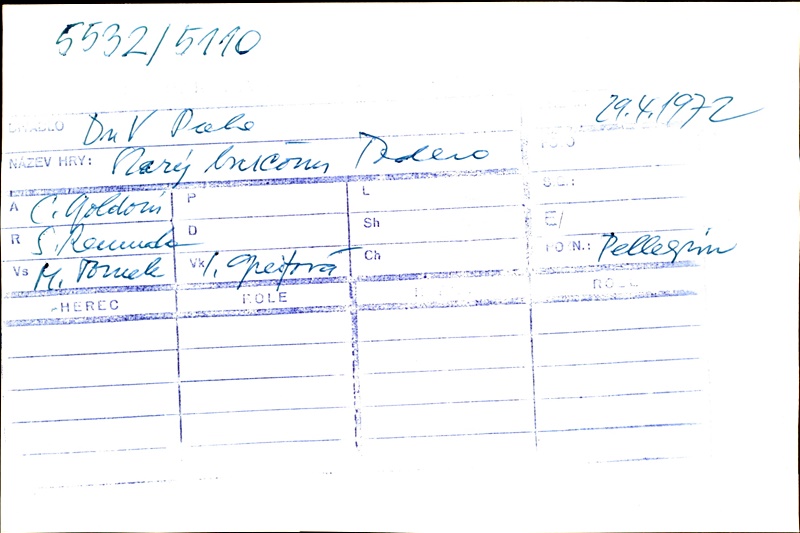 5532/5110
29.4.1972
DIVADLO DnV Praha
NÁZEV HRY: Starý bručoun Todero
A C. Goldoni P L
R S. Remunda D Sh E/
Vs M. Tomek Vk I. Greifová Ch FOTO N.: Pellegrini
HEREC ROLE ROLE